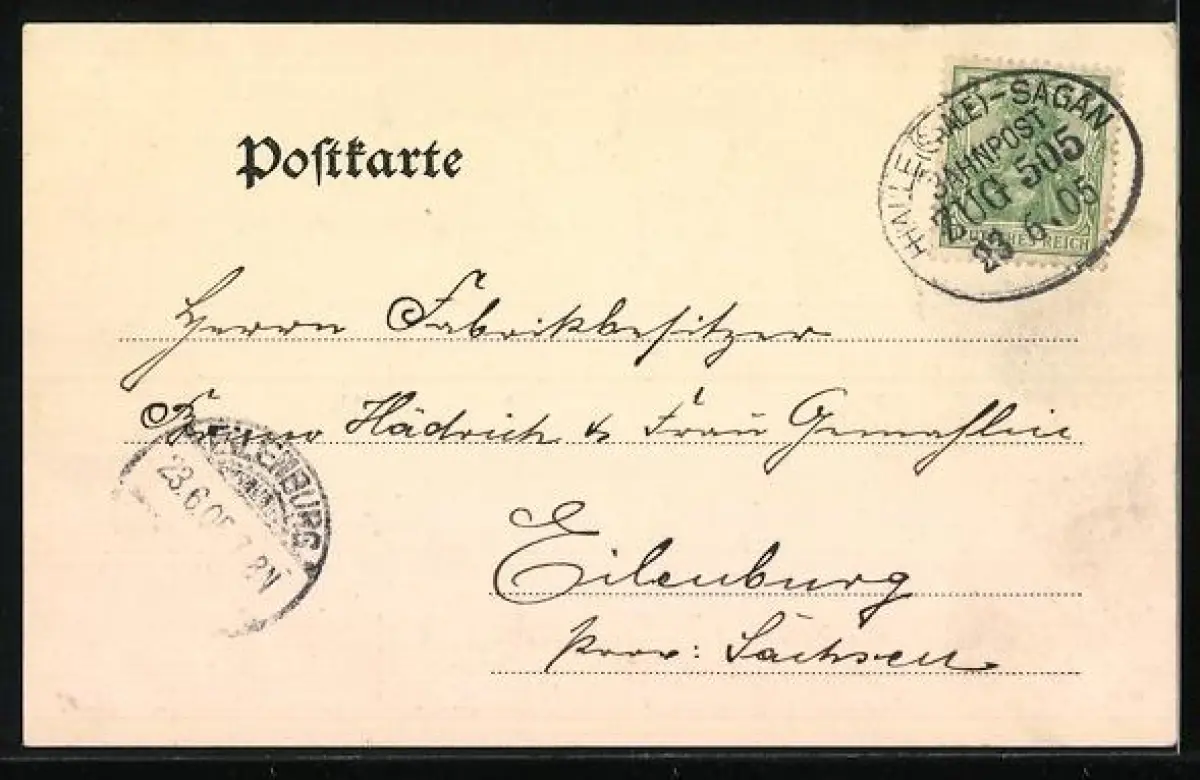 Postkarte
HALLE (SAALE)-SAGAN
BAHNPOST
ZUG 505
23 6.05
DEUTSCHES REICH
Herrn Fabrikbesitzer
Bruno Hädrich & Frau Gemahlin
EILENBURG
23.6.05
Eilenburg
Prov: Sachsen